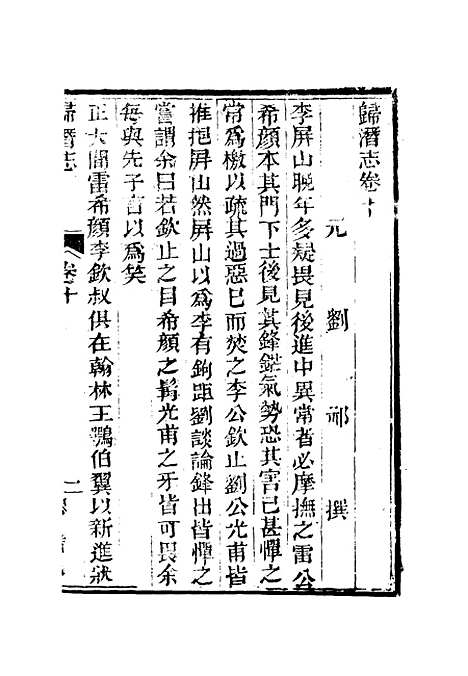 歸潛志卷十
元劉祁撰
李屏山晚年多疑畏見後進中異常者必摩撫之雷公
希顏本其門下士後見其鋒鋩氣勢恐其害己甚憚之
常爲檄以疏其過惡已而焚之李公欽止劉公光甫皆
推挹屏山然屏山以爲李有鉤距劉談論鋒出皆憚之
嘗謂余曰若欽止之目希顏之髯光甫之牙皆可畏余
每與先子言以爲笑
正大間雷希顏李欽叔俱在翰林王鶚伯翼以新進狀
歸潛志
卷十